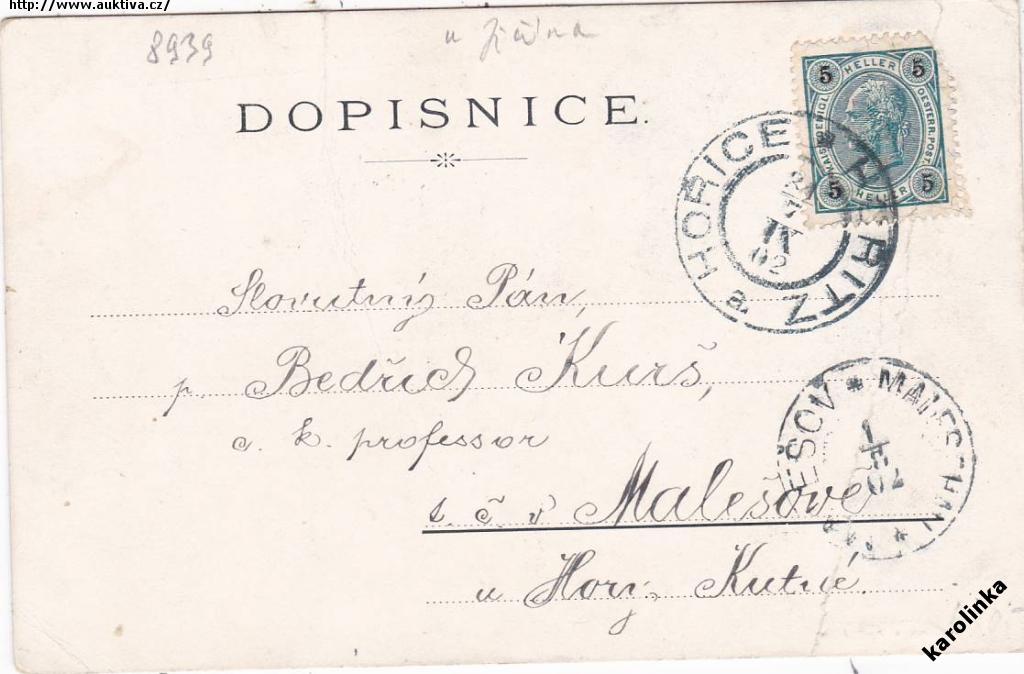 http://www.auktiva.cz/
8939
u Jičína
DOPISNICE.
5 HELLER 5
KAIS. KOENIGL. OESTERR. POST.
5 HELLER 5
HOŘICE * HOŘITZ a
IX
02
Slovutný Pán,
p. Bedřich Kurš,
c. k. professor
t. č. v Malešově
u Hory Kutné.
MALEŠOV * MALESCHAU *
1
02
karolinka